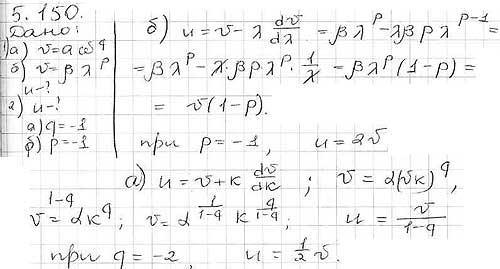 5.150.
Дано:
1) а) v = a ω^q
б) v = β λ^p
u - ?
2) u - ?
а) q = -1
б) p = -1
б) u = v - λ dv/dλ = β λ^p - λ β p λ^(p-1) =
= β λ^p - λ · β p λ^p · 1/λ = β λ^p (1 - p) =
= v(1 - p).
при p = -1, u = 2v
а) u = v + к dv/dк ; v = α(vк)^q,
v^(1-q) = α к^q ; v = α^(1/(1-q)) к^(q/(1-q)) ; u = v/(1-q)
при q = -2, u = 1/2 v.